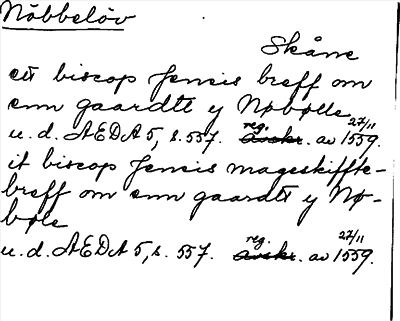 Nöbbelöv
Skåne
eit biscop Jensis breff om
enn gaardtt y Nøbølle
u.d. AEDA 5, s. 557. reg. Avskr. av 27/11 1559.
it biscop Jensis mageskiffte-
breff om enn gaardtt y Nø-
bøle
u.d. AEDA 5, s. 557. reg. Avskr. av 27/11 1559.